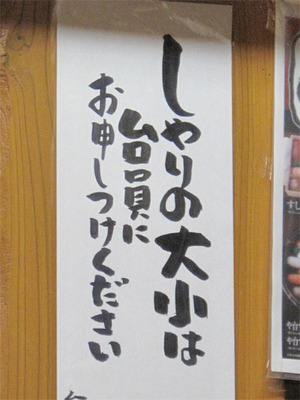 しゃりの大小は
台員に
お申しつけください